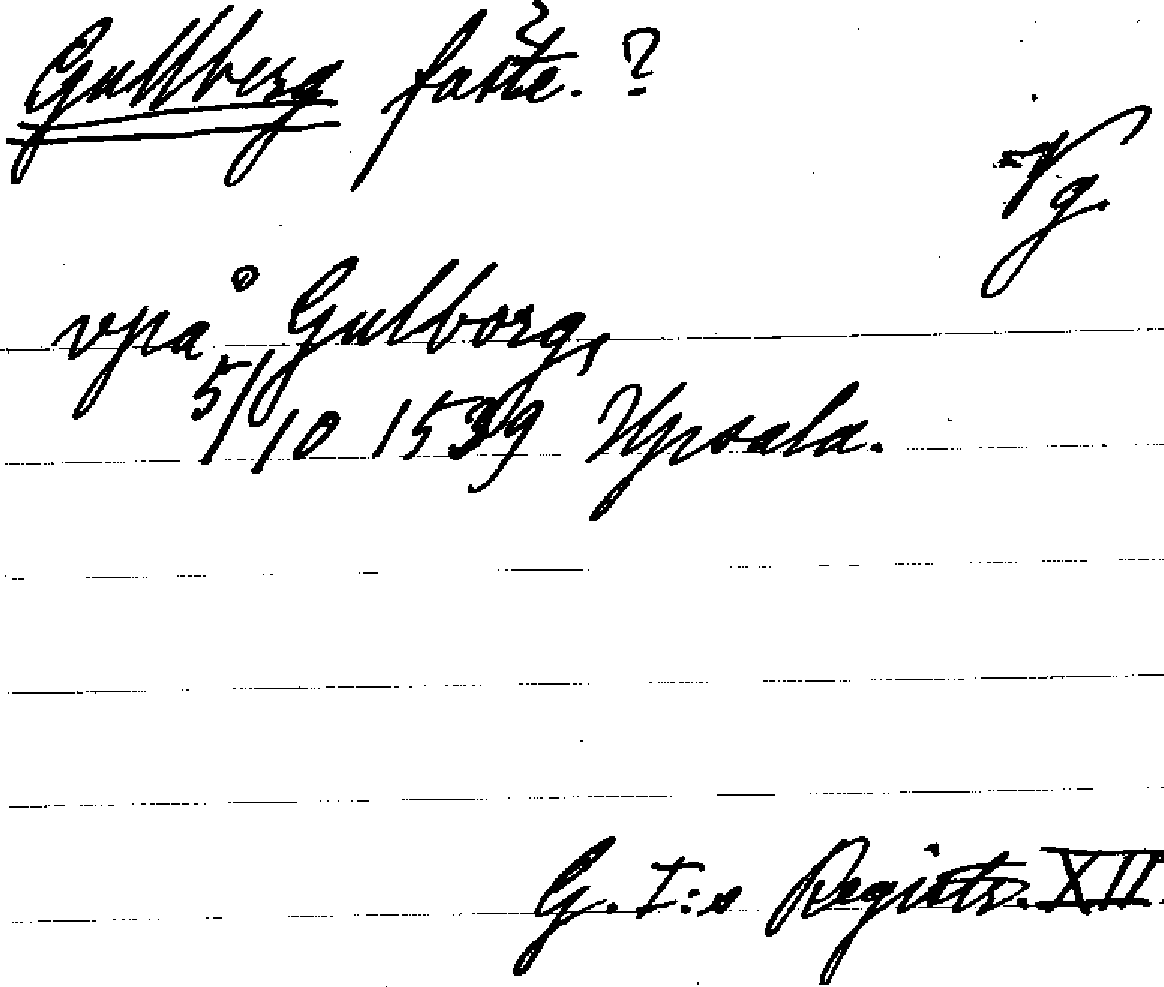 Gullberg fäste. ?
Vg.
vpå Gulborg,
5/10 1539 Upsala.
G. I:s Registr. XII.